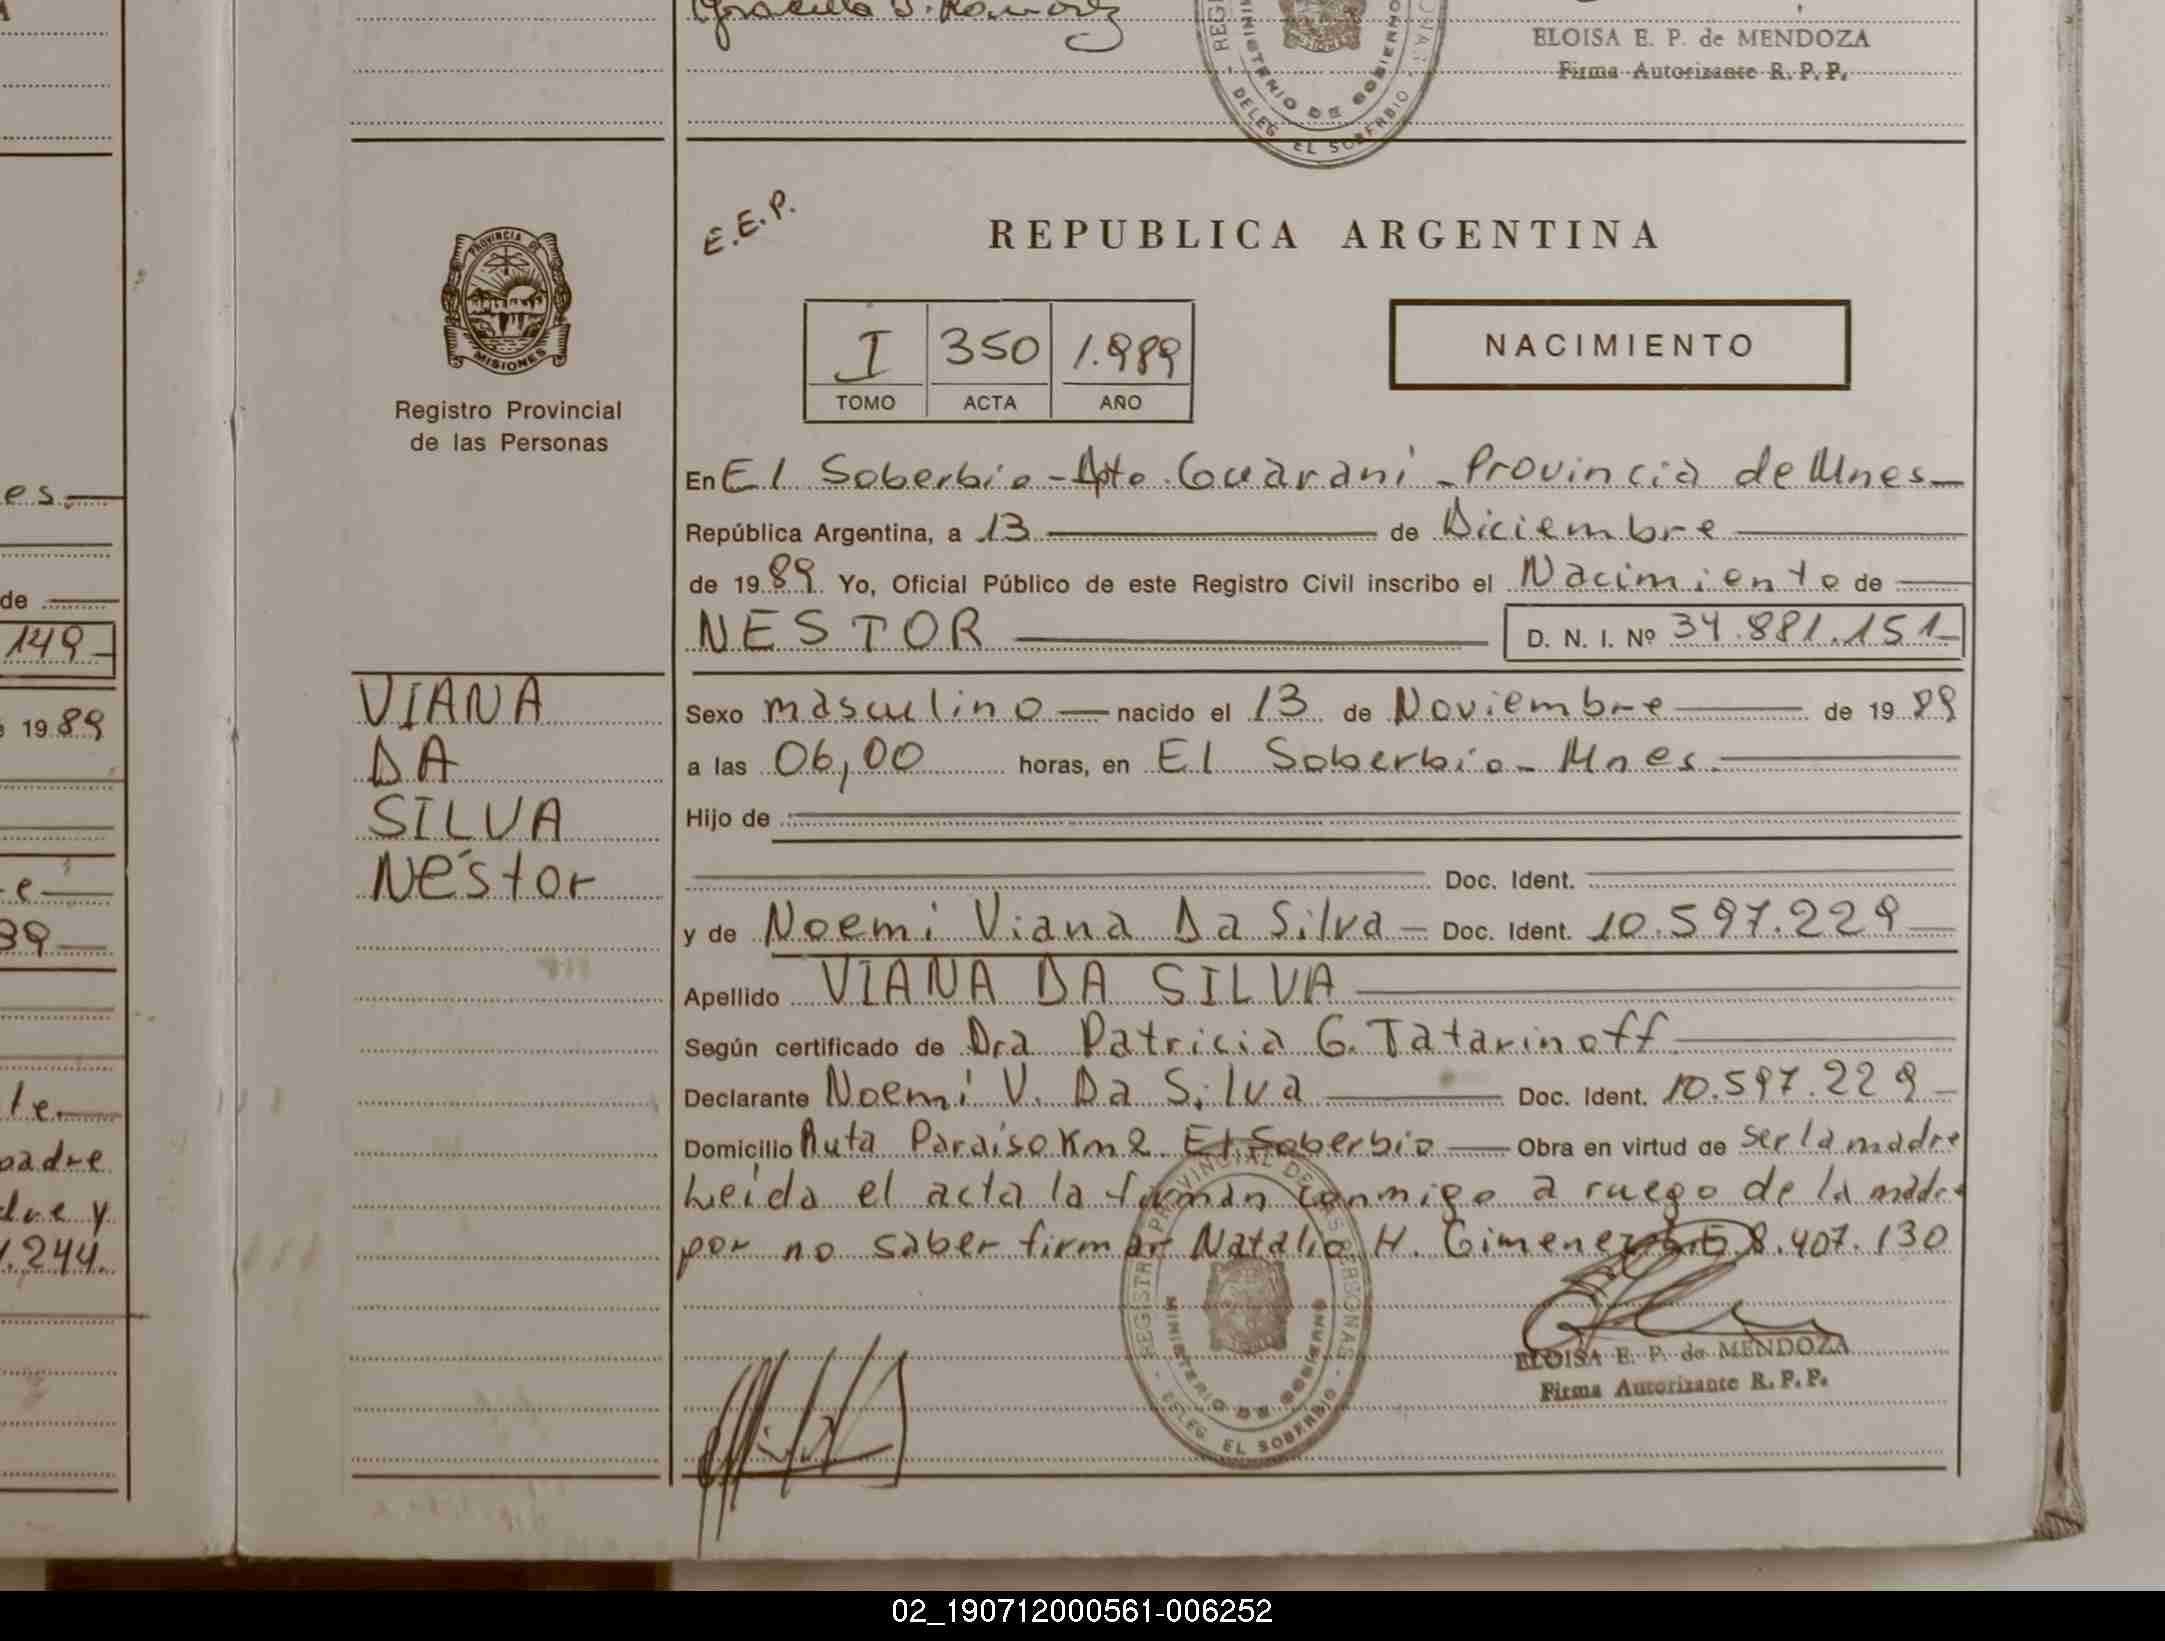 Graciela J. Ramirez
ELOISA E. P. de MENDOZA
Firma Autorizante R. P. P.
DELEG EL SOBERBIO
MINISTERIO DE GOBIERNO
E.E.P.
REPUBLICA ARGENTINA
PROVINCIA DE
MISIONES
Registro Provincial
de las Personas
I 350 1.989
TOMO ACTA AÑO
NACIMIENTO
En El Soberbio - Dpto. Guarani - Provincia de Mnes
República Argentina, a 13 de Diciembre
de 1989 Yo, Oficial Público de este Registro Civil inscribo el Nacimiento de
NESTOR D. N. I. Nº 34.881.151
VIANA
DA
SILVA
Néstor
Sexo masculino nacido el 13 de Noviembre de 1989
a las 06,00 horas, en El Soberbio - Mnes.
Hijo de
Doc. Ident.
y de Noemi Viana Da Silva Doc. Ident. 10.597.229
Apellido VIANA DA SILVA
Según certificado de Dra Patricia G. Tatarinoff
Declarante Noemi V. Da Silva Doc. Ident. 10.597.229
Domicilio Ruta Paraiso Km 2 El Soberbio Obra en virtud de ser la madre
Leída el acta la firman conmigo a ruego de la madre
por no saber firmar Natalio H. Gimenez 8.407.130
REGISTRO PROVINCIAL DE LAS PERSONAS
MINISTERIO DE GOBIERNO
DELEG EL SOBERBIO
ELOISA E. P. de MENDOZA
Firma Autorizante R. P. P.
es
de
149
1989
e
39
te.
padre
dre y
.244
02_190712000561-006252